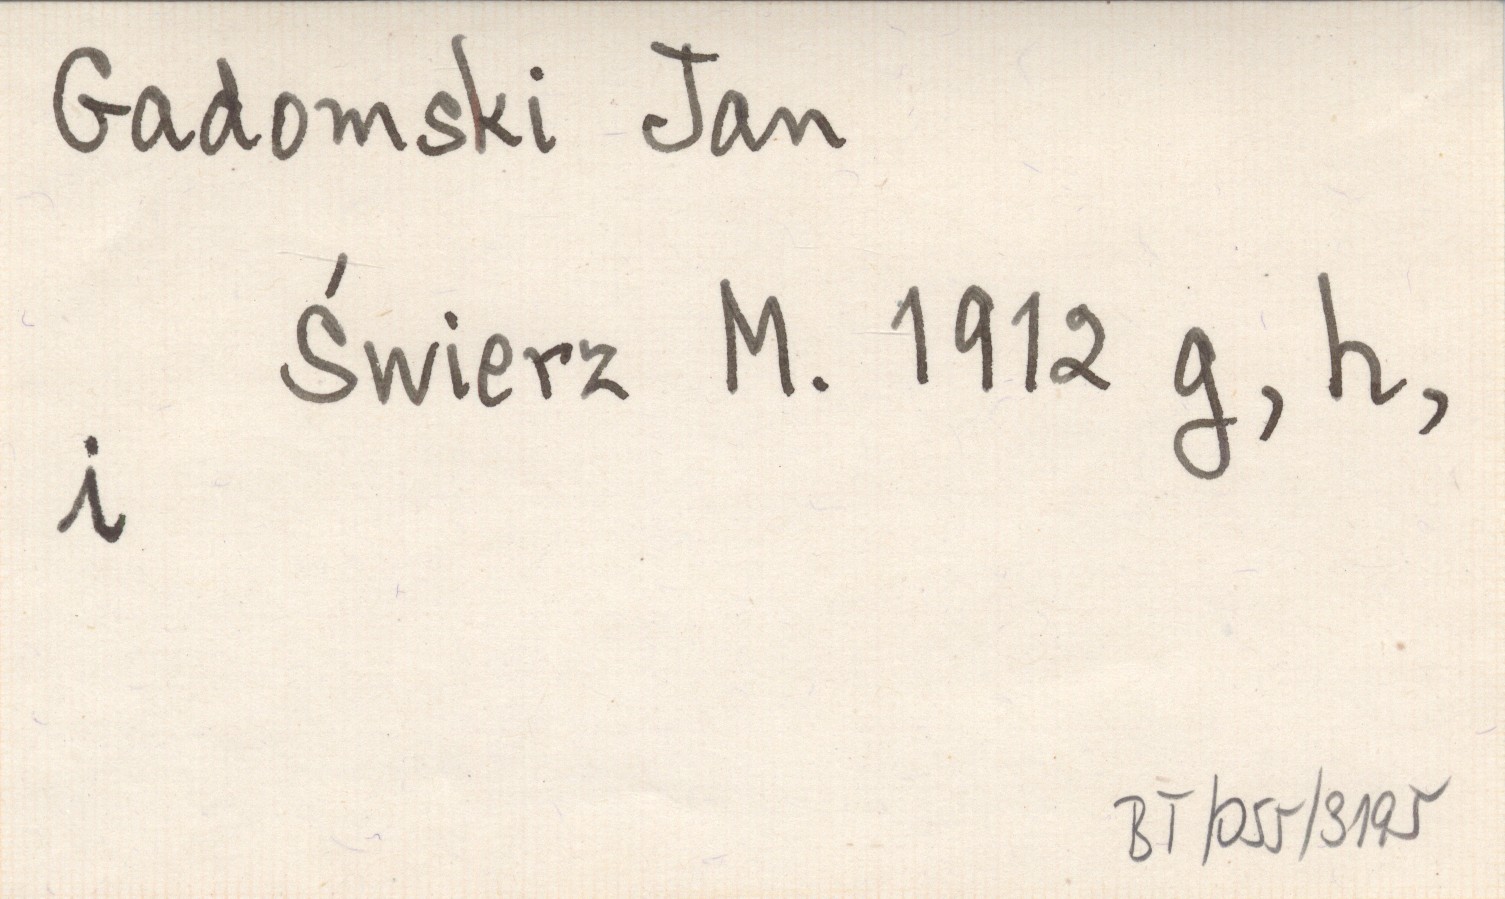 Gadomski Jan
Świerz M. 1912 g, h,
i
BT/055/3195